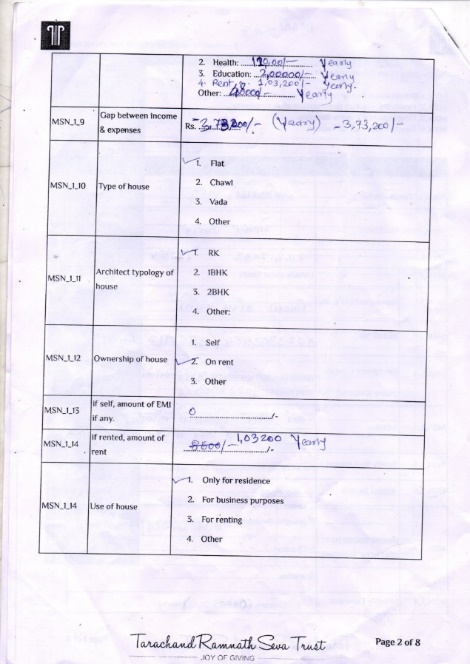 2. Health: Yearly
3. Education: 2,00000/- Yearly
4. Rent 1,03,200/- Yearly.
Other: 48000/- Yearly
MSN_1_9
Gap between income & expenses
Rs. -3,73,200/- (Yearly) -3,73,200/-
MSN_1_10
Type of house
1. Flat
2. Chawl
3. Vada
4. Other
MSN_1_11
Architect typology of house
1. RK
2. 1BHK
3. 2BHK
4. Other:
MSN_1_12
Ownership of house
1. Self
2. On rent
3. Other
MSN_1_13
if self, amount of EMI if any.
0 /-
MSN_1_14
if rented, amount of rent
8600/- 1,03200 Yearly
/-
MSN_1_14
Use of house
1. Only for residence
2. For business purposes
3. For renting
4. Other
Tarachand Ramnath Seva Trust
JOY OF GIVING
Page 2 of 8